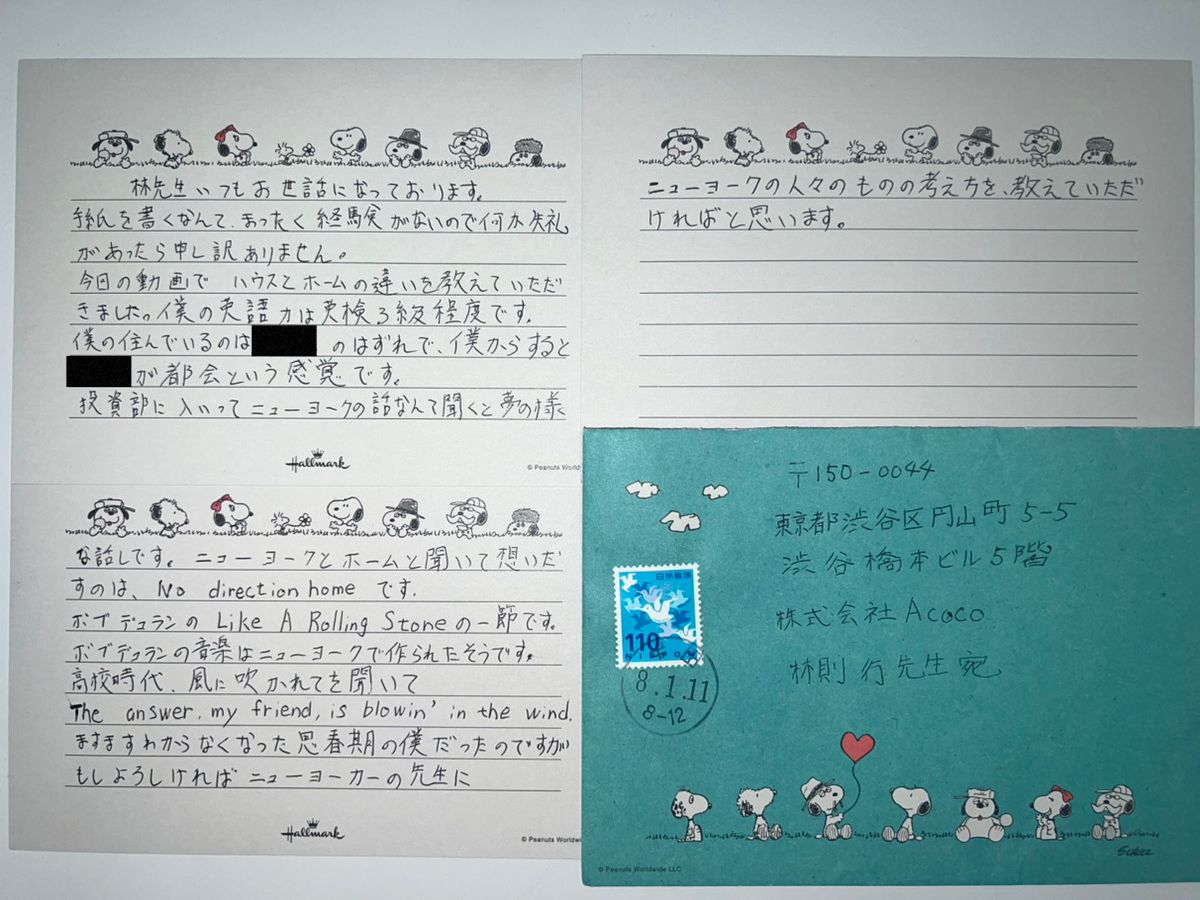 林先生いつもお世話になっております。
手紙を書くなんて、まったく経験がないので何か失礼
があったら申し訳ありません。
今日の動画で ハウスとホームの違いを教えていただ
きました。僕の英語力は英検3級程度です。
僕の住んでいるのは のはずれで、僕からすると
が都会という感覚です。
投資部に入いってニューヨークの話なんて聞くと夢の様
Hallmark
© Peanuts Worldw
な話しです。ニューヨークとホームと聞いて想いだ
すのは、No direction home です。
ボブデュランの Like A Rolling Stoneの一節です。
ボブデュランの音楽はニューヨークで作られたそうです。
高校時代、風に吹かれてを聞いて
The answer, my friend, is blowin' in the wind.
ますますわからなくなった思春期の僕だったのですが
もしよろしければ ニューヨーカーの先生に
Hallmark
© Peanuts Worldwi
ニューヨークの人々のものの考え方を、教えていただ
ければと思います。
〒150-0044
東京都渋谷区円山町5-5
渋谷橋本ビル5階
株式会社Acoco
林則行先生宛
日本郵便
110
NIPPON
8.1.11
8-12
SCHULZ
© Peanuts Worldwide LLC